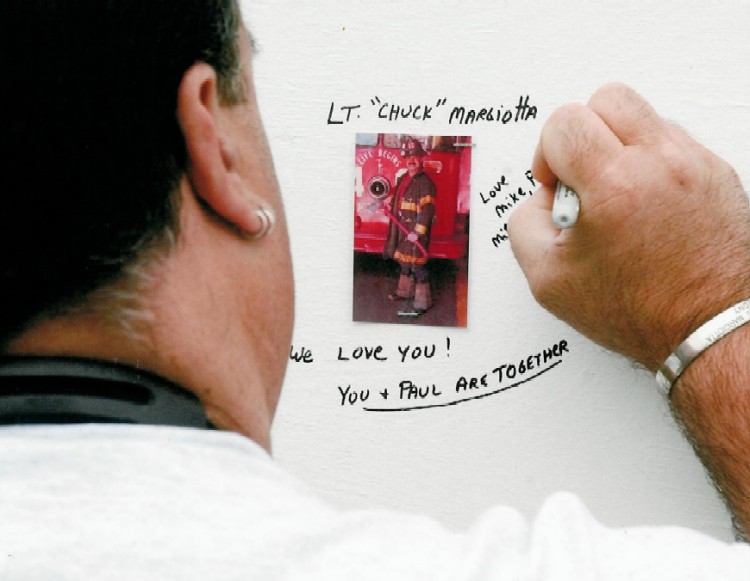 LT. "CHUCK" MARGIOTTA
LIFE BEGINS
Love
Mike,
We LOVE YOU!
YOU + PAUL ARE TOGETHER
MARGIOTTA